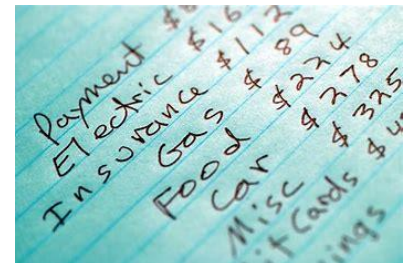 Payment $
Electric $16
Insurance $112
Gas $89
Food $224
Car $278
Misc $325
Cards $4